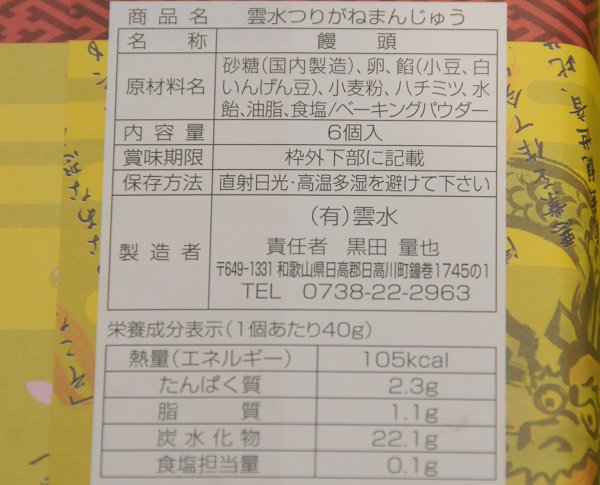 商品名 雲水つりがねまんじゅう
名称 饅頭
原材料名 砂糖(国内製造)、卵、餡(小豆、白
いんげん豆)、小麦粉、ハチミツ、水
飴、油脂、食塩/ベーキングパウダー
内容量 6個入
賞味期限 枠外下部に記載
保存方法 直射日光・高温多湿を避けて下さい
製造者 (有)雲水
責任者 黒田 量也
〒649-1331 和歌山県日高郡日高川町鐘巻1745の1
TEL 0738-22-2963
栄養成分表示(1個あたり40g)
熱量(エネルギー) 105kcal
たんぱく質 2.3g
脂質 1.1g
炭水化物 22.1g
食塩担当量 0.1g